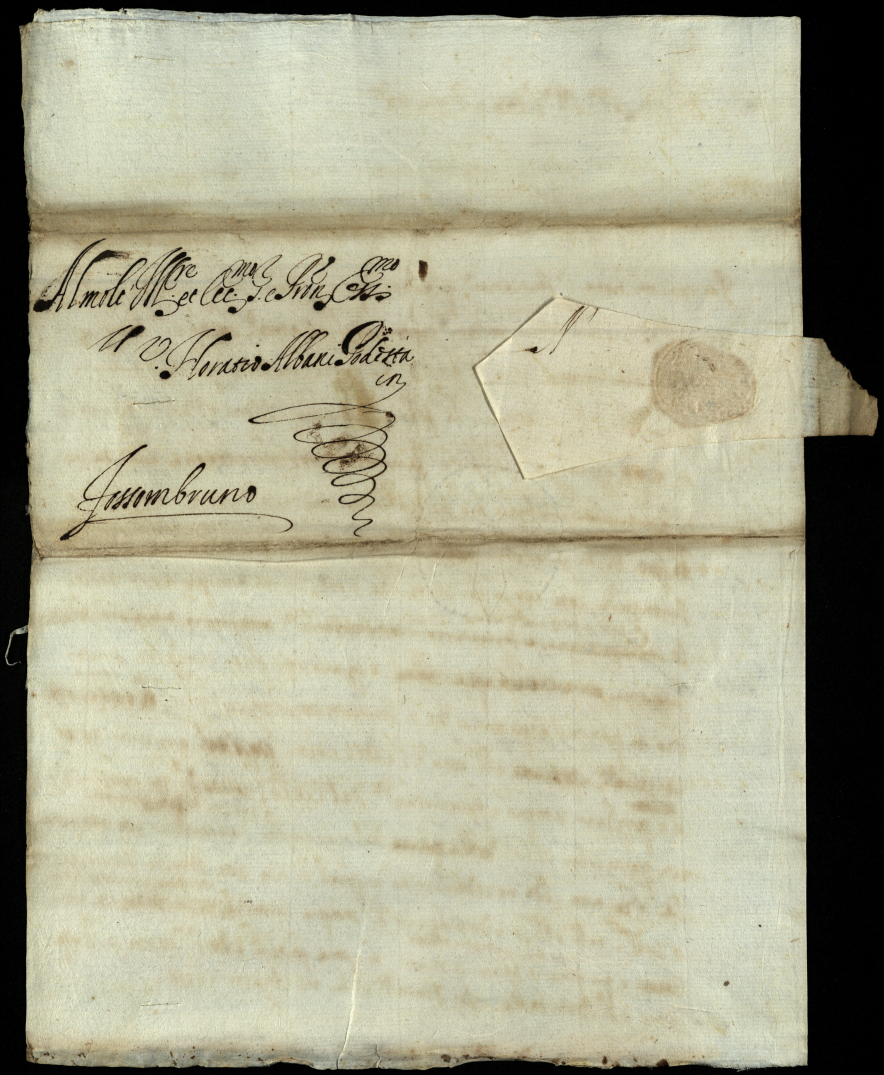 Al molt' Ill.re et Ecc.mo S.r e P'ron Oss.mo
Il S.r Horatio Albani Podestà
in
Fossombruno